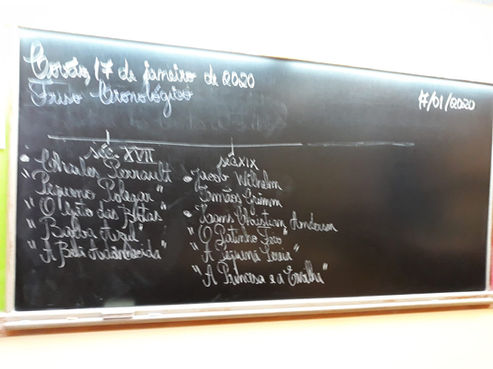 Covão, 17 de janeiro de 2020
17/01/2020
Friso Cronológico
séc. XVII
• Charles Perrault
"Pequeno Polegar"
"O Gato das Botas"
"Barba Azul"
"A Bela Adormecida"
séc XIX
• Jacob Wilhelm
Irmãos Grimm
• Hans Christian Andersen
"O Patinho Feio"
"A Pequena Sereia"
"A Princesa e a Ervilha"